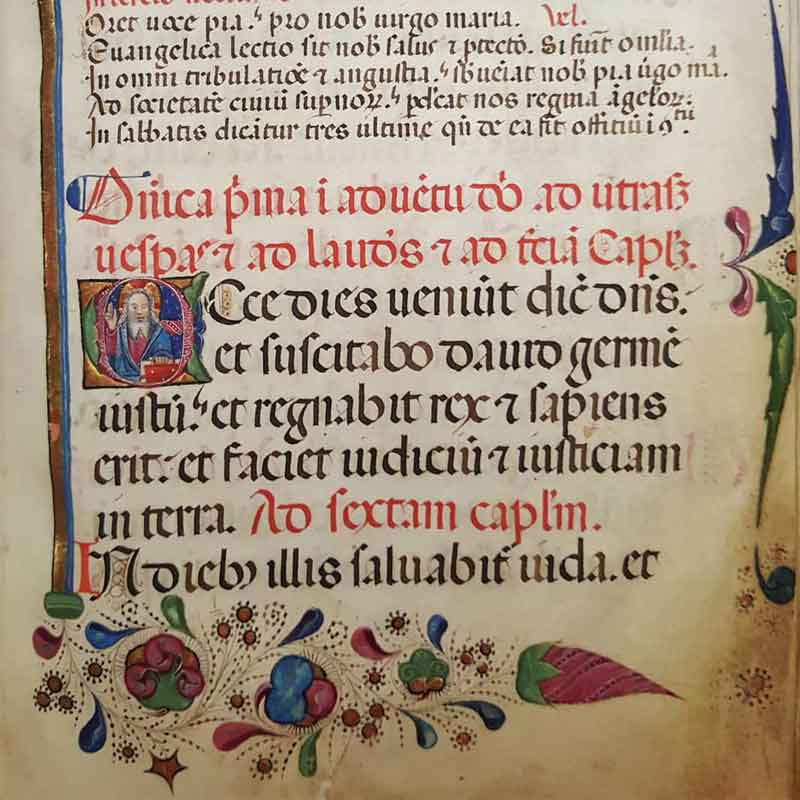 Oret voce pia.⁊ pro nob̄ virgo maria. Vel.
Euangelica lectio sit nob̄ salus ⁊ ꝓtectō. Si fuīt omīlia.
In omni tribulatiōe ⁊ angustia.⁊ sb̄ueīat nob̄ pia v̄go ma.
Ad societatē ciuiū supnoꝝ.⁊ pdc̄at nos regina āgeloꝝ.
In sabbatis dicūtur tres ultime qn̄ de ea fit offitiū i 9ᵗᵘ.
Dn̄ica p̄ma i aduētu dō ad utrasꝫ
uespas ⁊ ad laudēs ⁊ ad tc̄iā Capłꝫ.
Ecce dies ueniūt dic̄ dn̄s.
et suscitabo dauid germē
iustū. et regnabit rex ⁊ sapiens
erit. et faciet iudiciū ⁊ iusticiam
in terra. Ad sextam capłm.
In diebꝫ illis saluabit̄ iuda. et